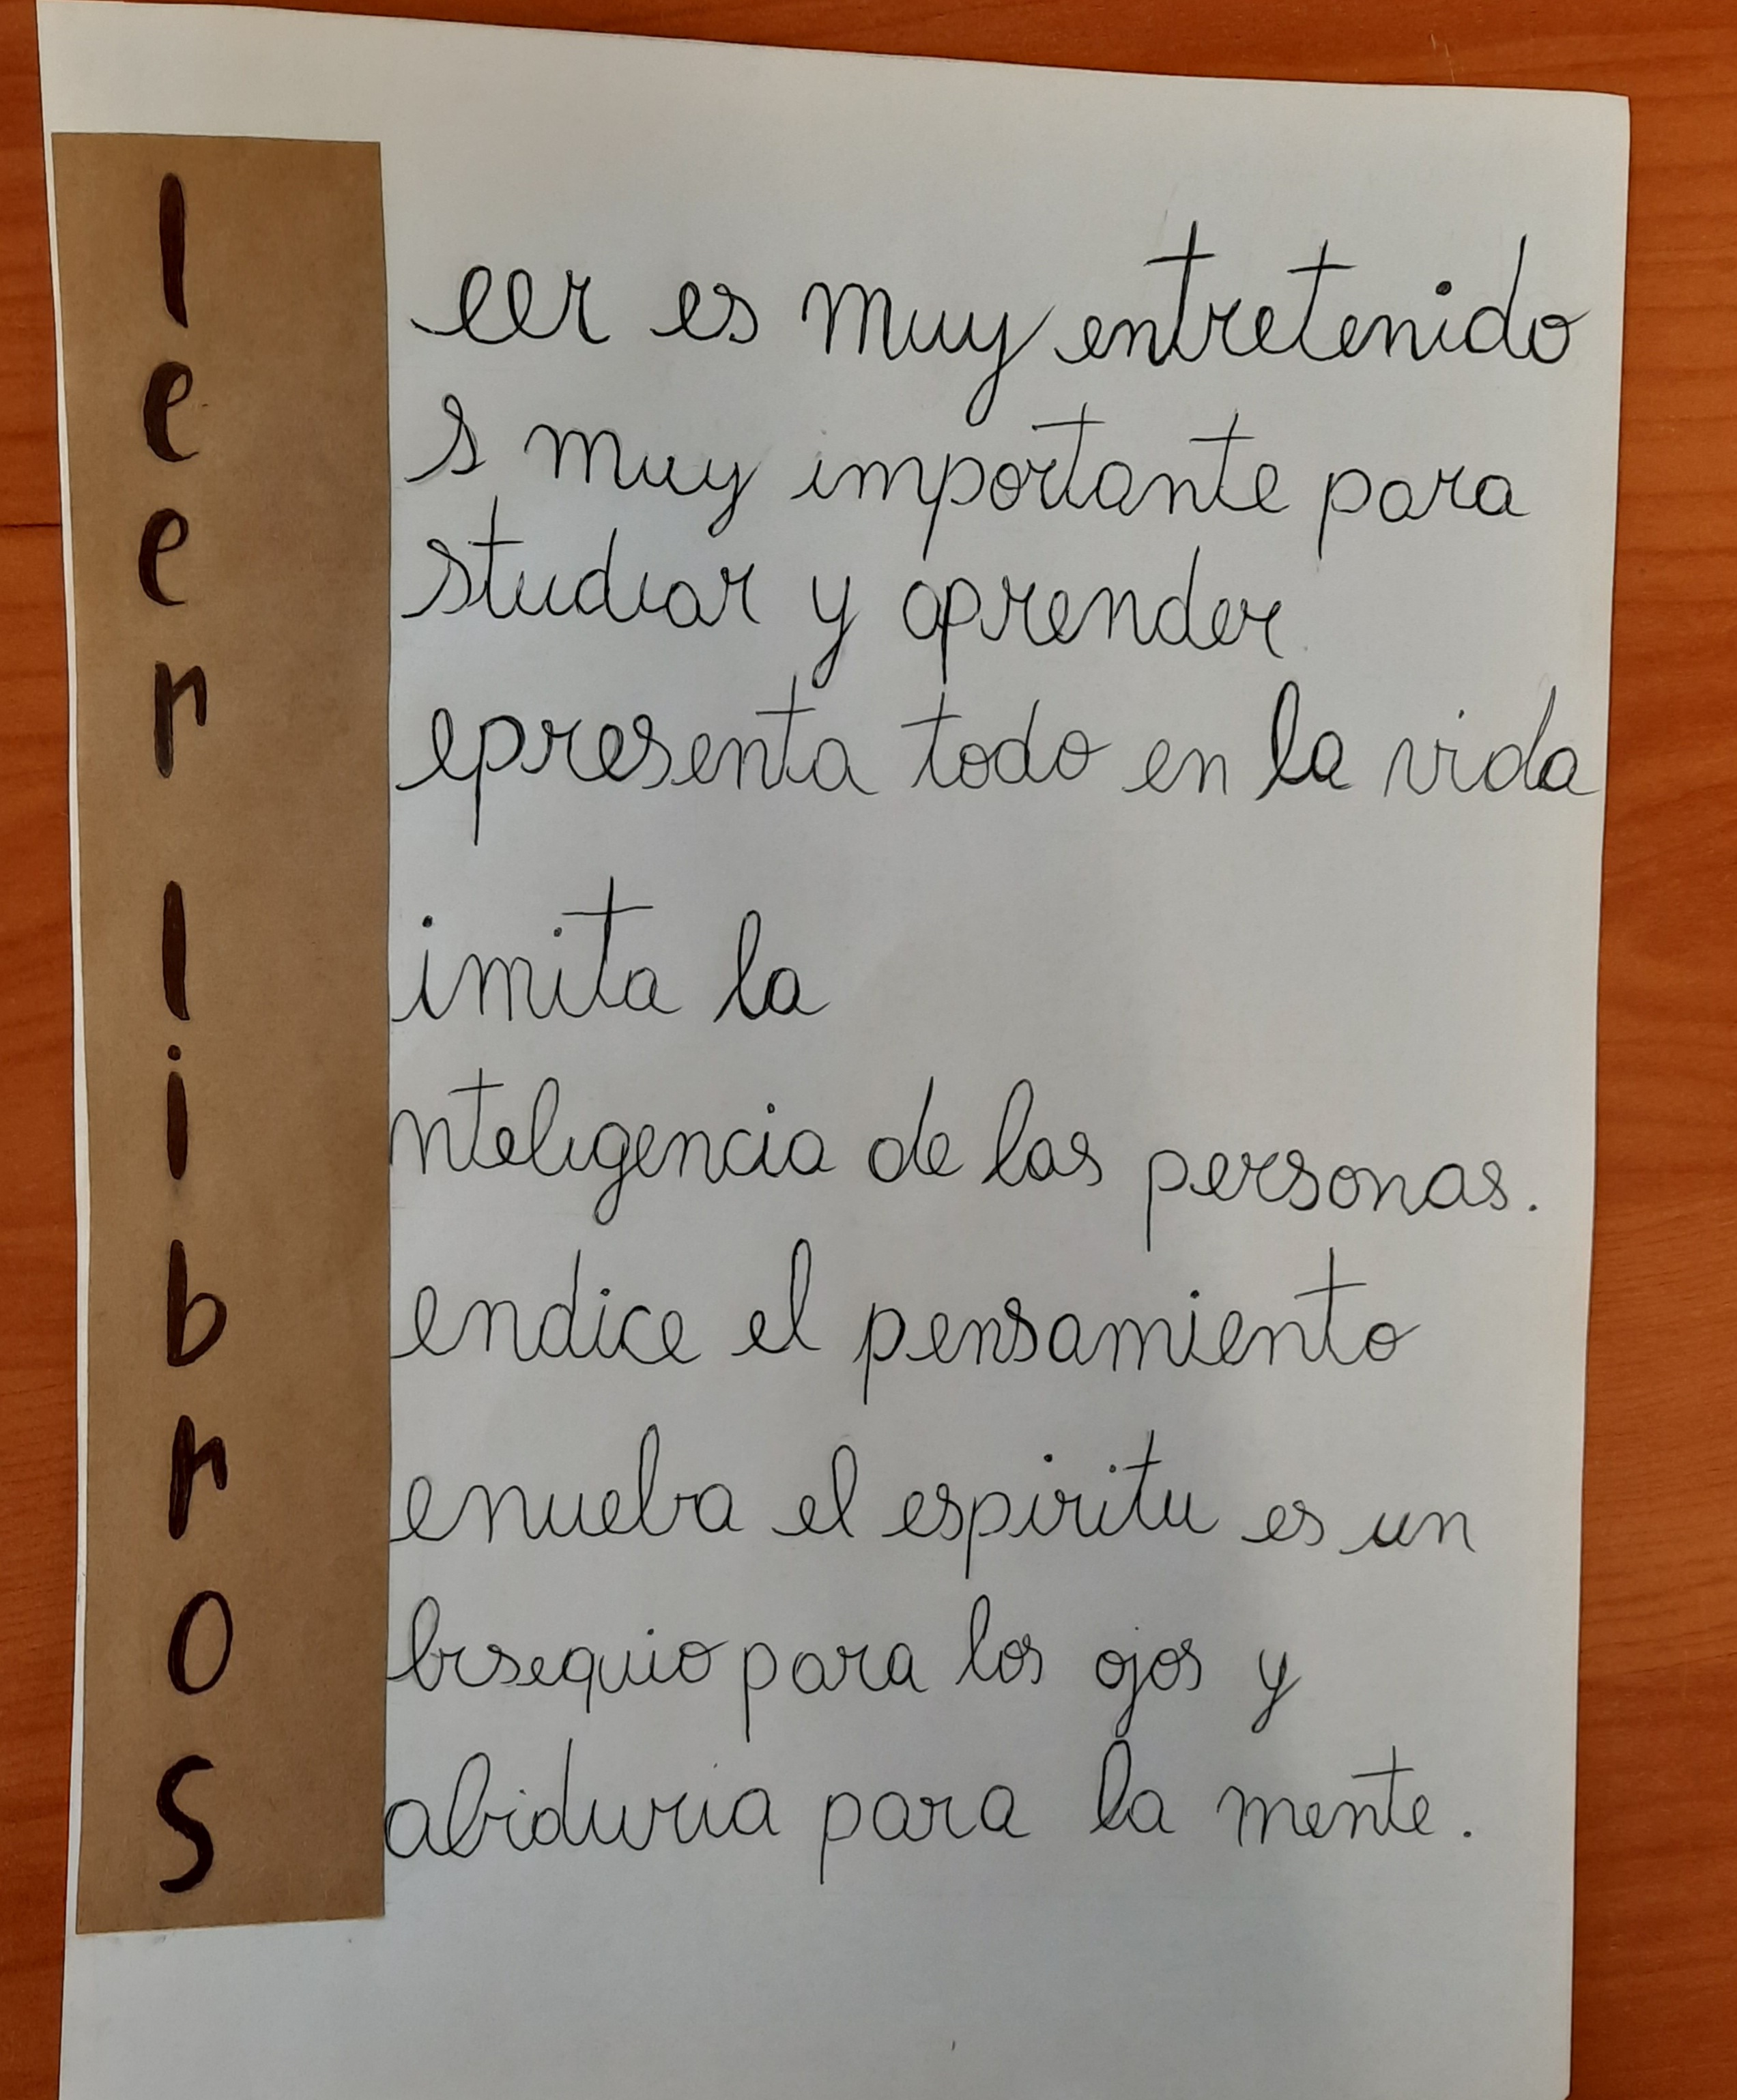 l eer es muy entretenido
e s muy importante para
e studiar y aprender
r epresenta todo en la vida
l imita la
i nteligencia de las personas.
b endice el pensamiento
r enueba el espiritu es un
o bsequio para los ojos y
s abiduria para la mente.